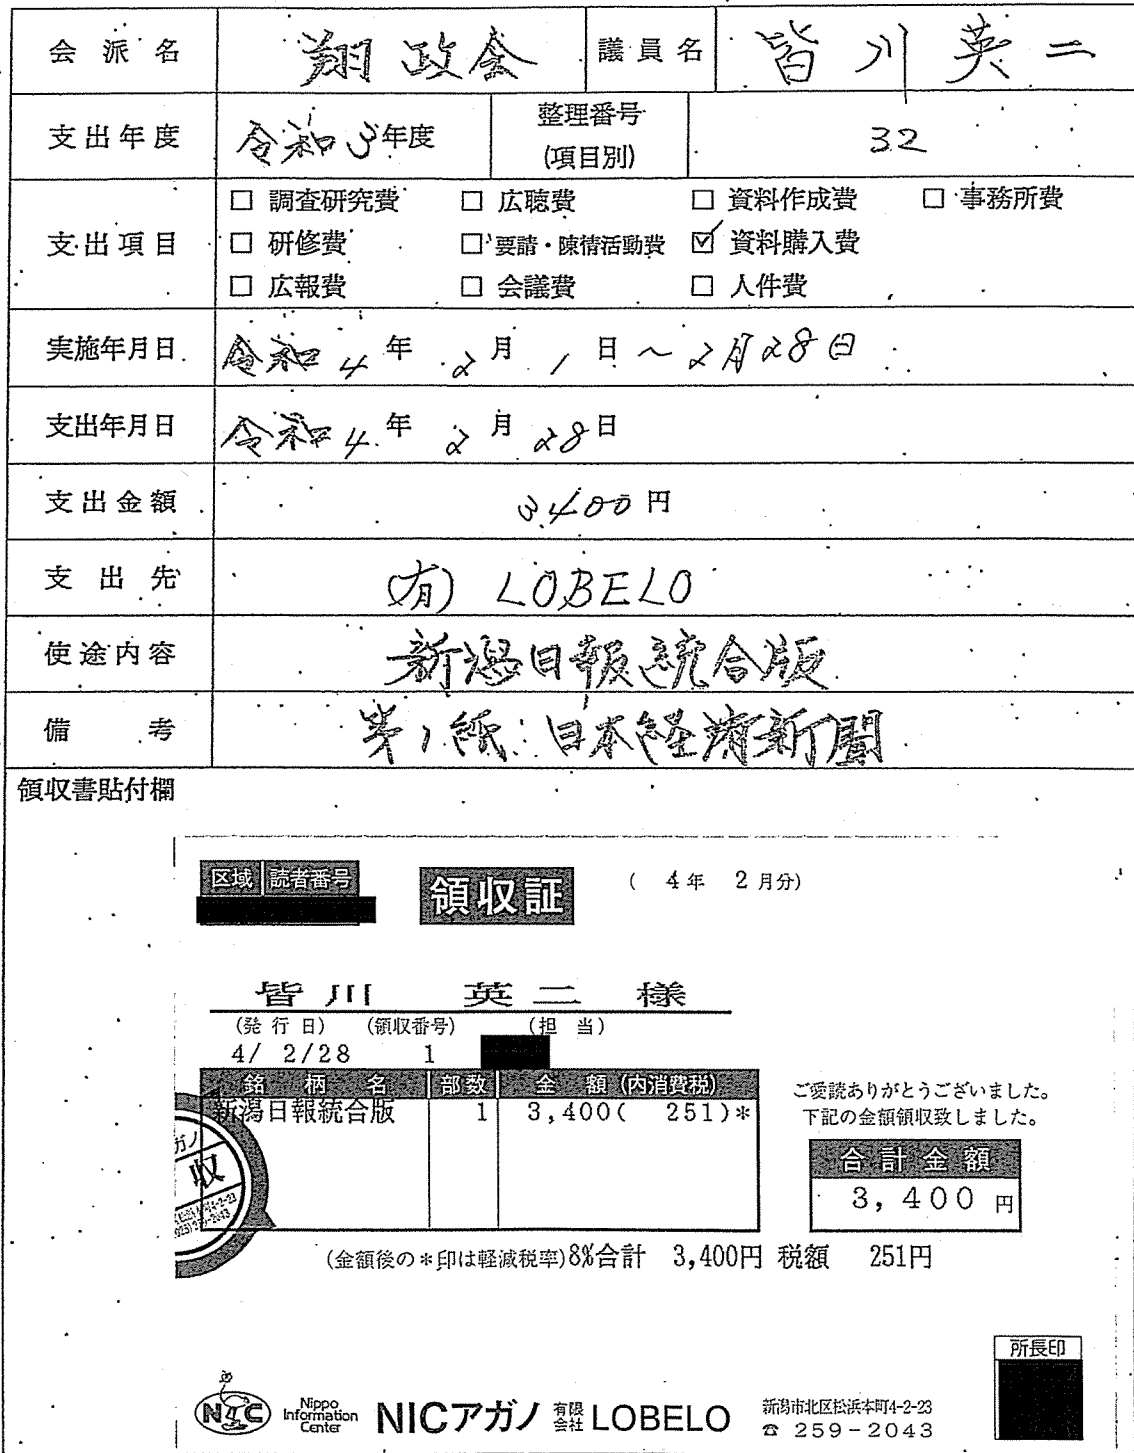 会派名 翔政会 議員名 皆川英二
支出年度 令和3年度 整理番号(項目別) 32
支出項目
□ 調査研究費 □ 広聴費 □ 資料作成費 □ 事務所費
□ 研修費 □ 要請・陳情活動費 ☑ 資料購入費
□ 広報費 □ 会議費 □ 人件費
実施年月日 令和4年2月1日~2月28日
支出年月日 令和4年2月28日
支出金額 3400円
支出先 (有) LOBELO
使途内容 新潟日報統合版
備考 第1紙:日本経済新聞
領収書貼付欄
区域 読者番号
領収証 ( 4年 2月分)
皆川 英二 様
(発行日) (領収番号) (担当)
4/ 2/28 1
銘柄名 部数 金額(内消費税)
新潟日報統合版 1 3,400( 251)*
ご愛読ありがとうございました。
下記の金額領収致しました。
合計金額
3,400円
ガノ
収
(金額後の*印は軽減税率)8%合計 3,400円 税額 251円
所長印
NIC Nippo Information Center NICアガノ 有限会社 LOBELO
新潟市北区松浜本町4-2-23
☎ 259-2043